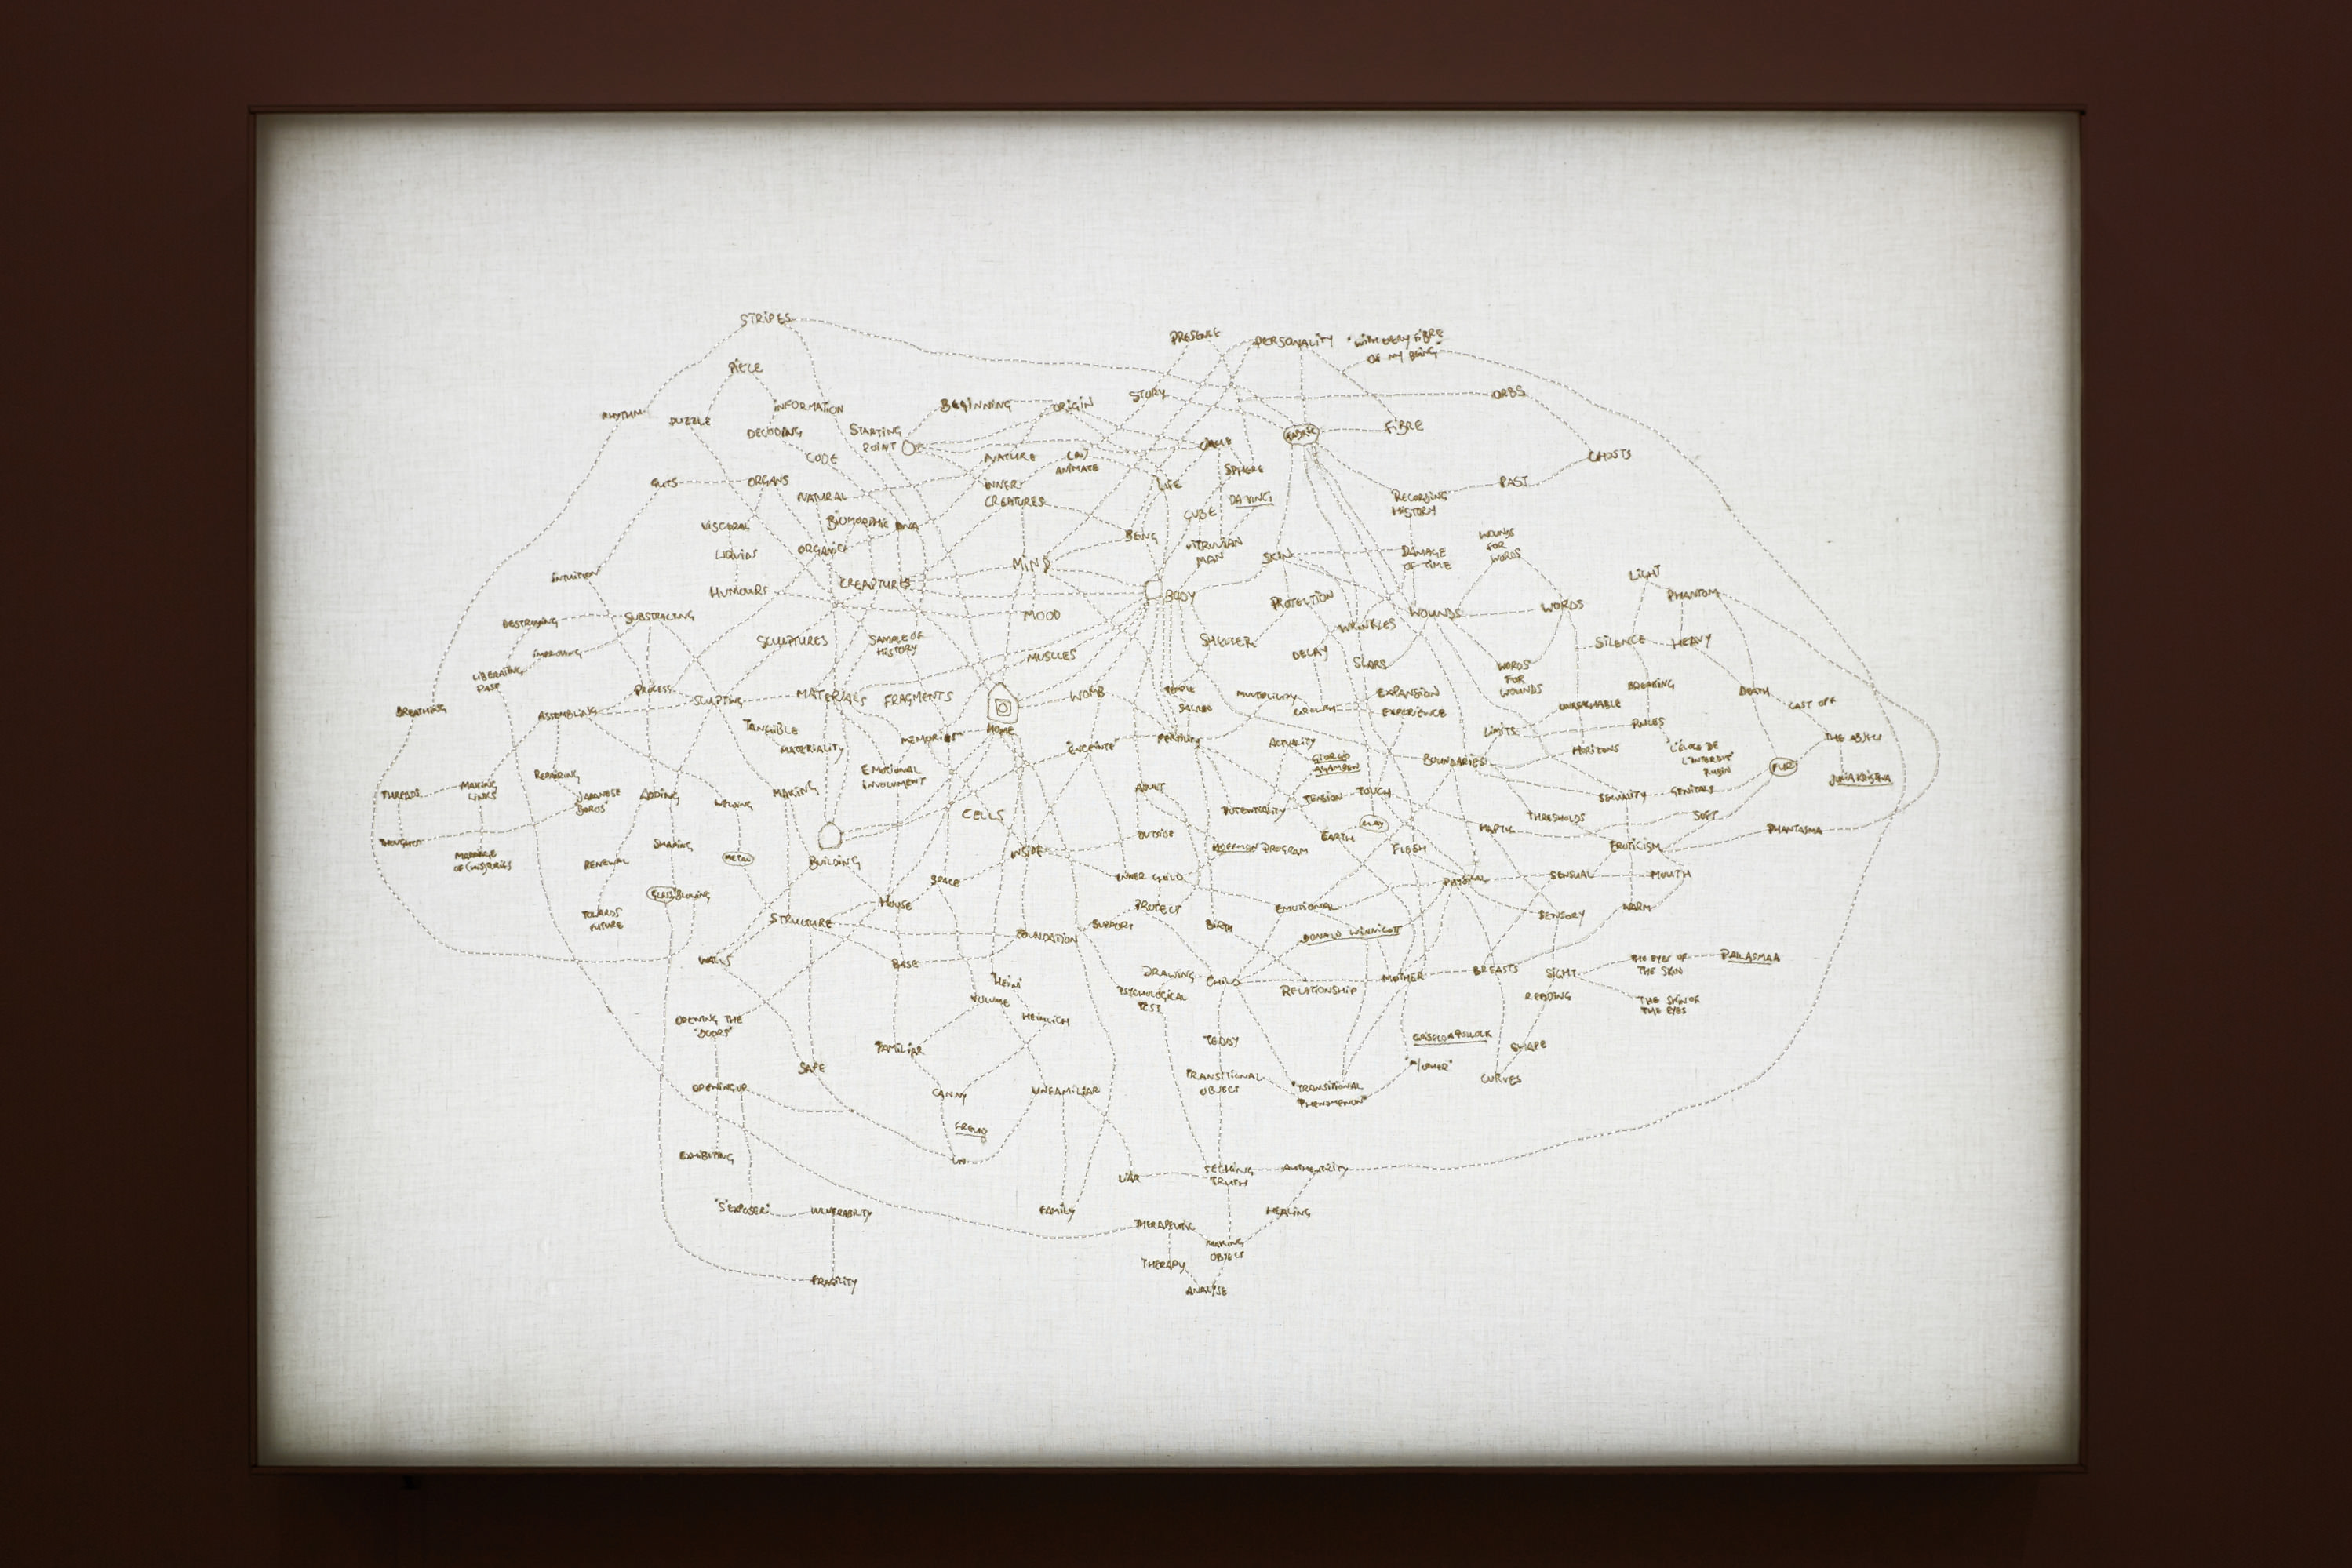 STRIPES
PRESENCE
PERSONALITY
"WITH EVERY FIBRE
OF MY BEING"
PIECE
STORY
ORBS
INFORMATION
BEGINNING
ORIGIN
RHYTHM
PUZZLE
DECODING
STARTING
POINT
FABRIC
FIBRE
CODE
NATURE
(IN)
ANIMATE
GHOSTS
SPHERE
GUTS
ORGANS
INNER
CREATURES
LIFE
PAST
NATURAL
DA VINCI
RECORDING
HISTORY
VISCERAL
BIOMORPHIC
DNA
CUBE
BEING
VITRUVIAN
MAN
WOUNDS
FOR
WORDS
LIQUIDS
ORGANIC
SKIN
DAMAGE
OF TIME
INTUITION
MIND
LIGHT
HUMOURS
CREAPTURES
BODY
PROTECTION
PHANTOM
DESTROYING
SUBSTRACTING
MOOD
WOUNDS
WORDS
WRINKLES
SCULPTURES
SAMPLE OF
HISTORY
SHELTER
SILENCE
HEAVY
MUSCLES
DELAY
SCARS
WORDS
FOR
WOUNDS
LIBERATING
PAST
PROCESS
SCULPTING
MATERIALS
FRAGMENTS
WOMB
TEMPLE
SACRED
MULTIPLICITY
EXPANSION
BREAKING
DEATH
CAST OFF
BREATHING
ASSEMBLING
GROWTH
EXPERIENCE
RULES
TANGIBLE
MATERIALITY
MEMORIES
HOME
"ENCEINTE"
LIMITS
ACTUALITY
BOUNDARIES
HORIZONS
"L'ÉLOGE DE
L'INTERDIT"
RUBIN
THE ABJECT
GIORGIO
AGAMBEN
FUR
REPAIRING
EMOTIONAL
INVOLVMENT
JULIA KRISTEVA
THREADS
MAKING
LINKS
JAPANESE
BOROS
ADDING
MAKING
ADULT
TENSION
TOUCH
SEXUALITY
GENITALS
POTENTIALITY
CELLS
CLAY
HAPTIC
THRESHOLDS
SOFT
PHANTASMA
THOUGHTS
SHAPING
OUTSIDE
EARTH
FLESH
EROTICISM
RENEWAL
METAL
BUILDING
INSIDE
HOFFMAN PROGRAM
SPACE
INNER CHILD
PHYSICAL
SENSUAL
MOUTH
GLASS BLOWING
HOUSE
PROTECT
EMOTIONAL
WARM
TOWARDS
FUTURE
STRUCTURE
SUPPORT
BIRTH
SENSORY
FOUNDATION
DONALD WINNICOTT
WALLS
BASE
DRAWING
PSYCHOLOGICAL
TEST
CHILD
RELATIONSHIP
MOTHER
BREASTS
SIGHT
THE EYES OF
THE SKIN
PALLASMAA
HEIM
VOLUME
READING
THE SKIN OF
THE EYES
OPENING THE
"DOORS"
HEIMLICH
FAMILIAR
TEDDY
GRISELDA POLLOCK
SHAPE
SAFE
TRANSITIONAL
OBJECT
"TRANSITIONAL
PHENOMENON"
CURVES
OPENING UP
CANNY
UNFAMILIAR
FREUD
EXHIBITING
UN
LIAR
SEEKING
TRUTH
AUTHENTICITY
"S'EXPOSER"
VULNERABILITY
FAMILY
THERAPEUTIC
HEALING
MAKING
OBJECT
THERAPY
FRAGILITY
ANALYSE